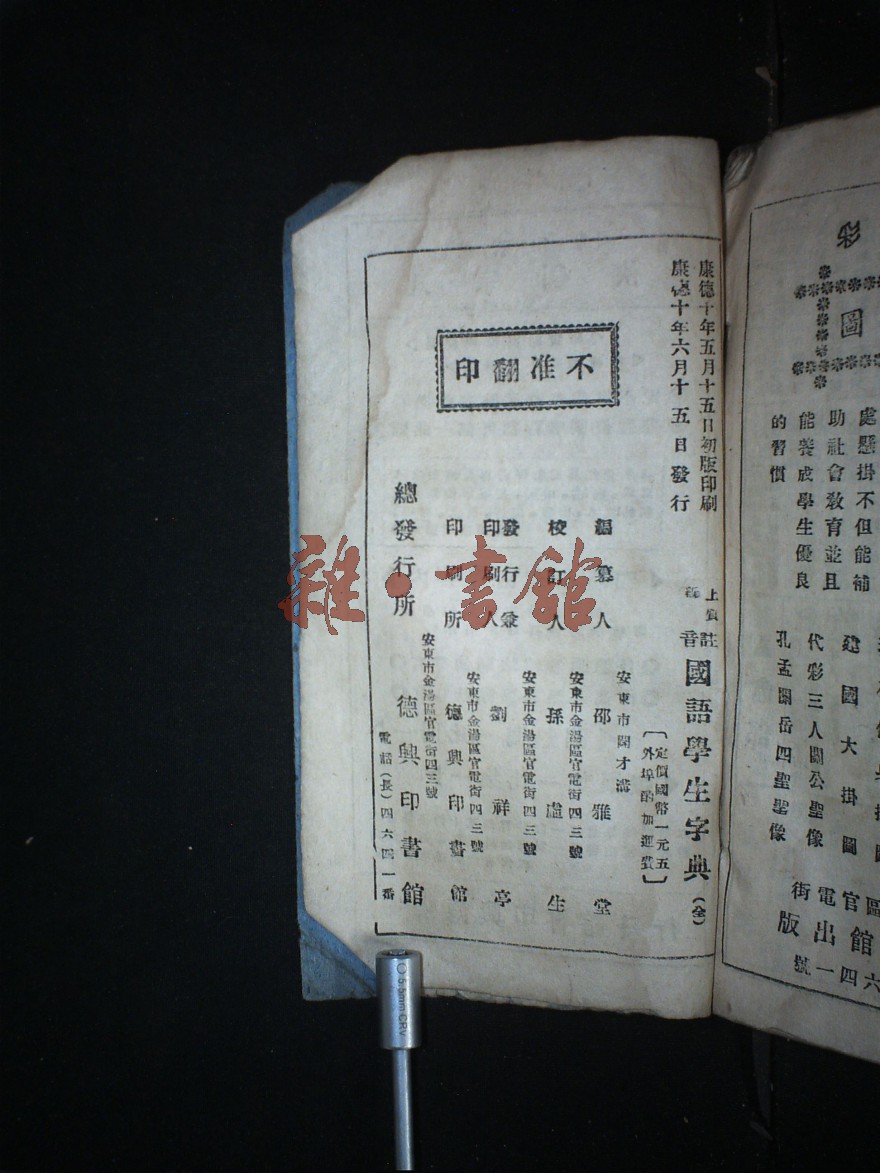 圖
處懸掛不但能補
助社會教育並且
能養成學生優良
的習慣
建國大掛圖
代彩三人關公聖像
孔孟關岳四聖聖像
區官電街
館出版
六四一號
康德十年五月十五日初版印刷
康德十年六月十五日發行
註音
國語學生字典(全)
定價國幣一元五
外埠酌加運費
不准翻印
編纂人 邵雅堂
校訂人 孫虛生
安東市金湯區官電街四三號
發行兼
印刷人 劉祥亭
安東市金湯區官電街四三號
印刷所 德興印書館
安東市金湯區官電街四三號
總發行所 德興印書館
安東市金湯區官電街四三號
電話(長)四六四一番
雜·書館
5.5mm CRV